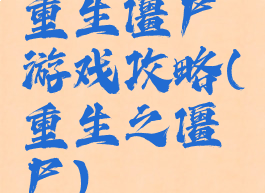 重生僵尸
游戏攻略(
重生之僵
尸)